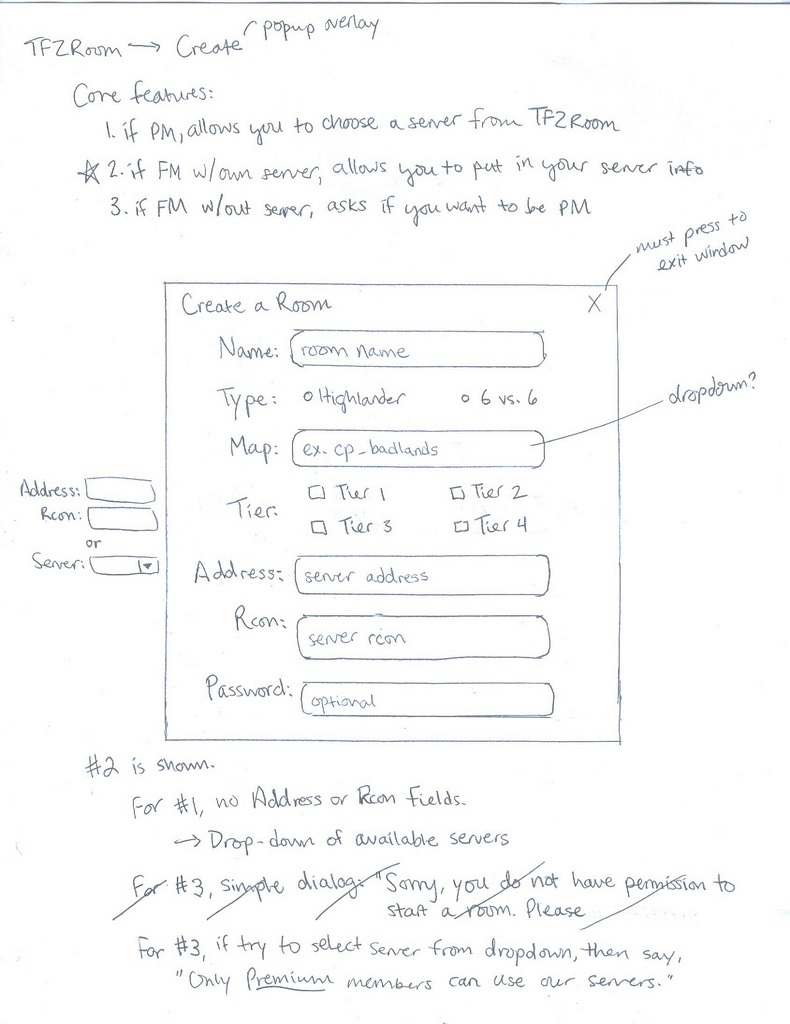 TF2Room → Create
popup overlay
Core features:
1. if PM, allows you to choose a server from TF2Room
☆ 2. if FM w/own server, allows you to put in your server info
3. if FM w/out server, asks if you want to be PM
must press to
exit window
Create a Room X
Name: room name
Type: Highlander 6 vs. 6
dropdown?
Map: ex. cp_badlands
Tier: Tier 1 Tier 2
Tier 3 Tier 4
Address:
Rcon:
or
Server:
Address: server address
Rcon: server rcon
Password: optional
#2 is shown.
For #1, no Address or Rcon Fields.
→ Drop-down of available servers
For #3, simple dialog: "Sorry, you do not have permission to
start a room. Please
For #3, if try to select server from dropdown, then say,
"Only Premium members can use our servers."